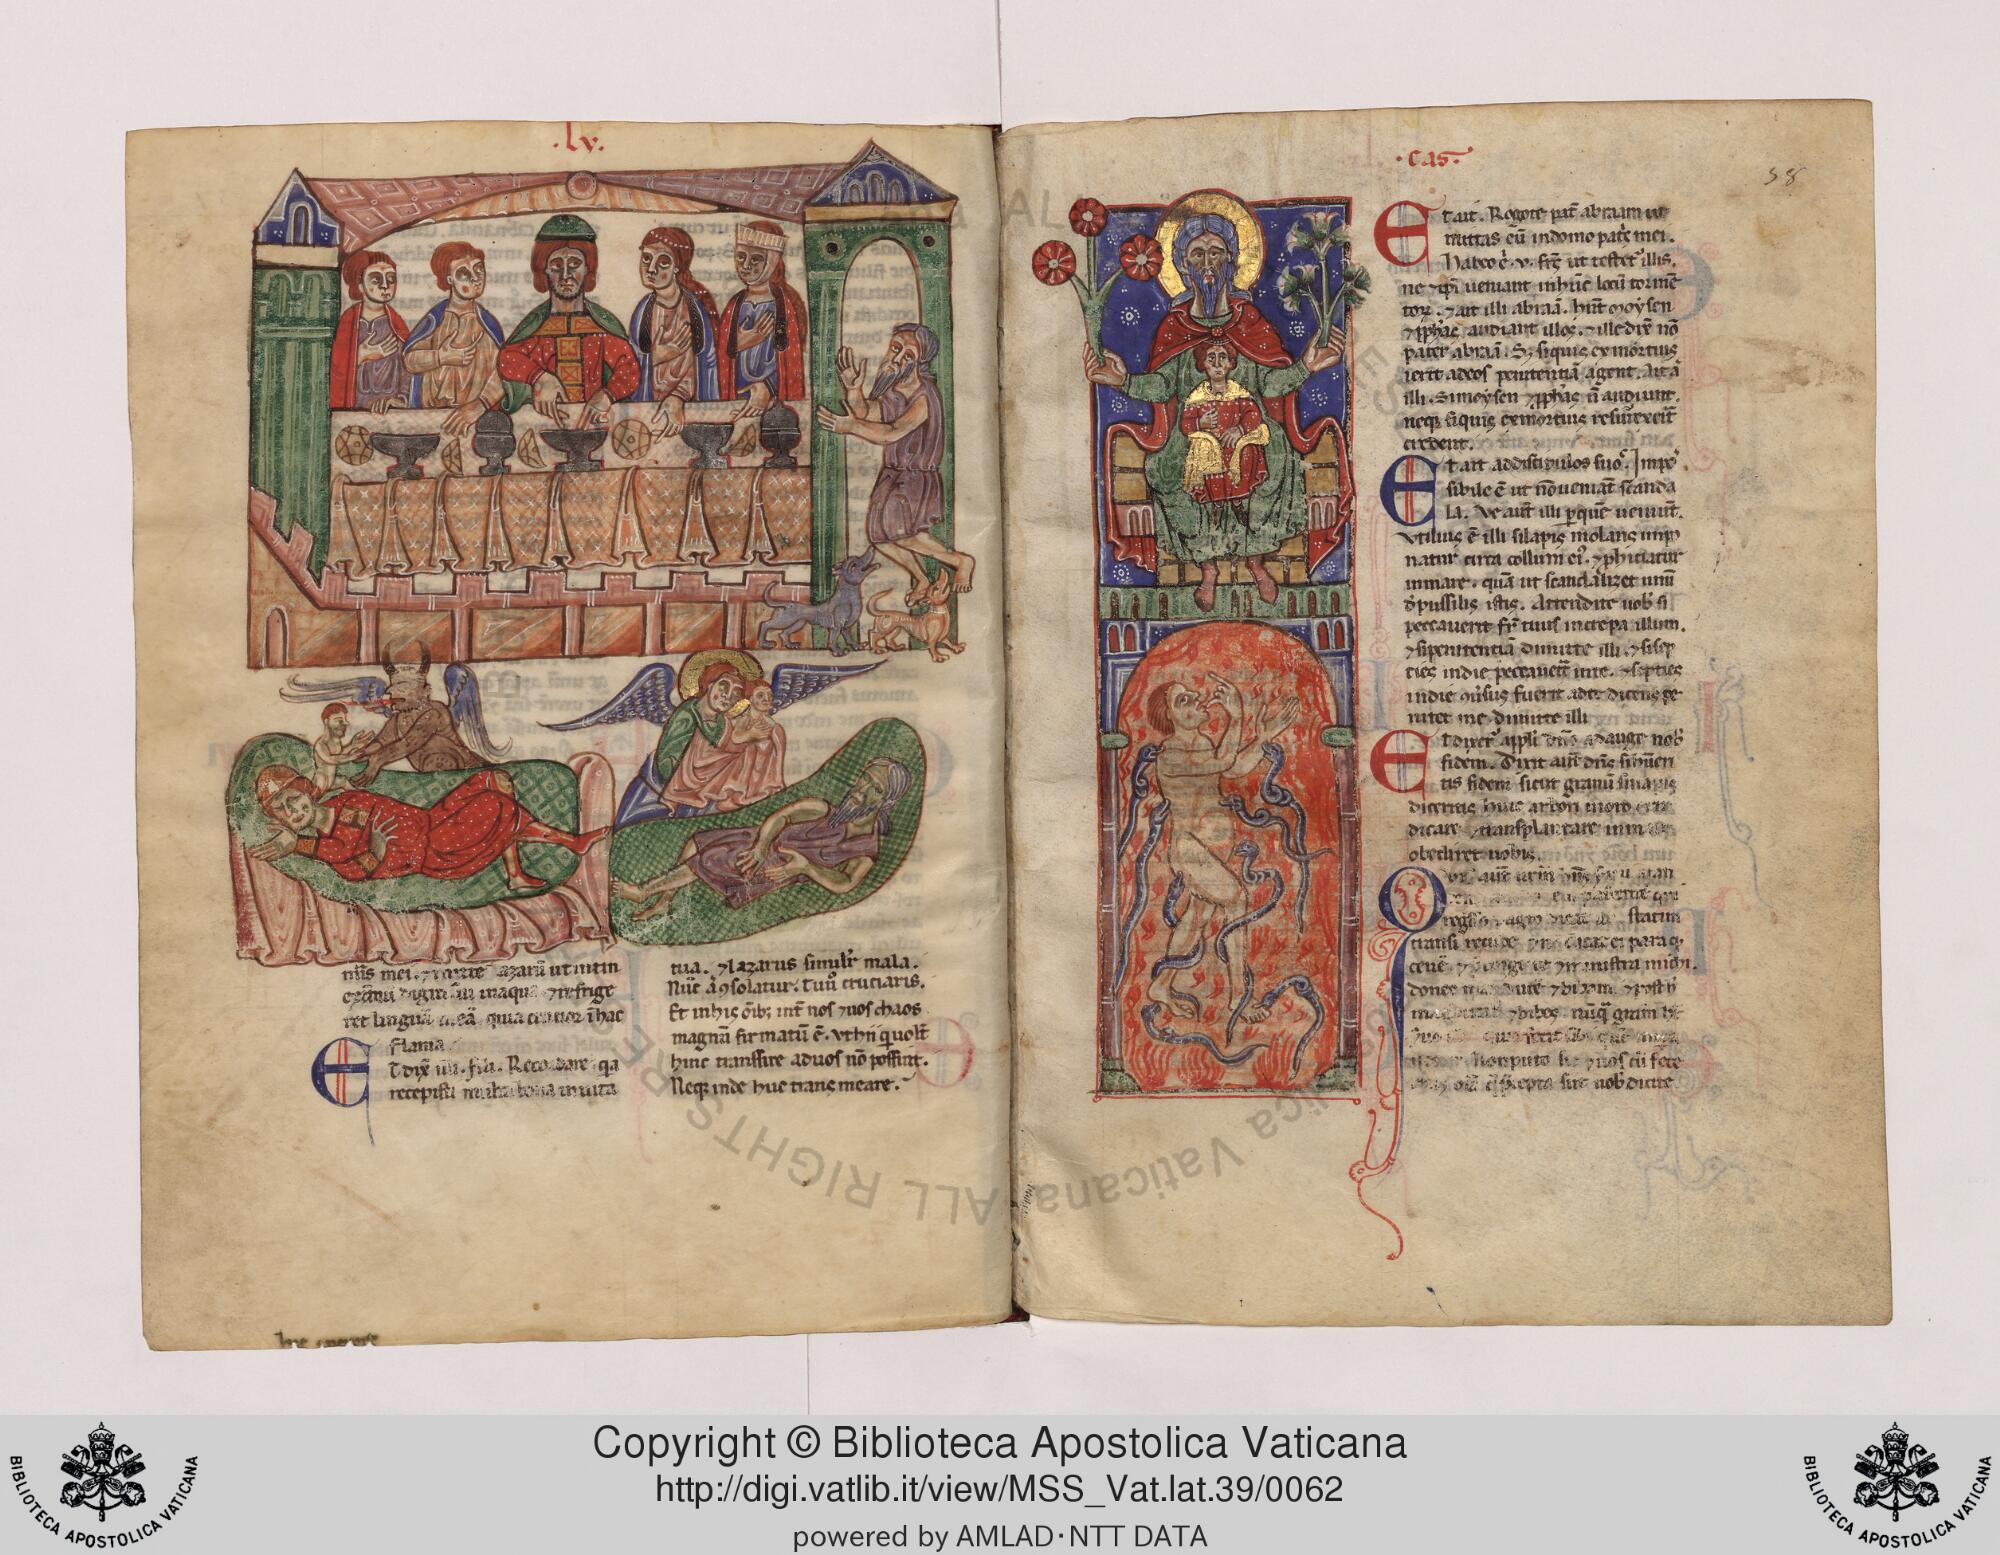 ·lv·
nus mei. ⁊ mitte lazarū ut intin
ret linguā meā. quia crucior ī hac
flama.
Et dix̄ illi. fili. Recordare qa
recepisti multa bona in uita
tua. ⁊ lazarus simulr̄ mala.
Nūc ā ꝯsolatur. tu ū cruciaris.
Et in hiis oībꝫ int̄ nos ⁊ uos chaos
magnū firmatū ē. ut hii q̄ uolt̄
hinc transire ad uos nō possint.
Neqꝫ inde huc trans meare.
·cas·
58
Et ait. Rogo te pat̄ abraam ut
mittas eū in domo patrꝭ mei.
Habeo ē. v. frēs ut testet̄ illis.
ne ⁊ ipi ueniant in hūc locū tormēt
toꝝ. ⁊ ait illi abraā. Hn̄t moysen
⁊ ꝓphās audiant illos. ⁊ ille dix̄ nō
pater abraā. Sꝫ si quis ex mortuis
ierit ad eos penitentiā agent. Ait ā
illi. Si moysen ⁊ ꝓphās n̄ audiunt.
neqꝫ si quis ex mortuis resurrexerit
credent.
Et ait ad discipulos suos. Impo
sibile ē ut nō ueniāt scanda
la. Ve aut̄ illi ꝑ quē ueniūt.
Vtilius ē illi si lapis molaris inpo
natur circa collum eiꝰ. ⁊ ꝓhiciatur
in mare. quā ut scandalizet unū
d̄ pussillis istis. Attendite uob̄ si
peccauerit fr̄ tuus increpa illum.
⁊ si penitentiā dimitte illi. ⁊ si sep
ties in die peccauerit in te. ⁊ septies
in die ꝯuersus fuerit ad te dicens pe
nitet me dimitte illi
Et dixerꝰ appli dn̄o adauge nob̄
fidem. Dixit aut̄ dn̄s si habuen
tis fidem sicut granū sinapis
diceretis huic arbori moro era
dicare ⁊ transplantare in mare
obediret uobis.
regresso agro dicat illi statim
transi recūbe ⁊ nō dicat ei para qꝫ
cenē ⁊ p̄cinge te ⁊ ministra michi.
donec manducē ⁊ bibam. ⁊ post h̄
manducabis ⁊ bibes. nūqꝫ gratiā h̄t
Copyright © Biblioteca Apostolica Vaticana
http://digi.vatlib.it/view/MSS_Vat.lat.39/0062
powered by AMLAD·NTT DATA
BIBLIOTECA APOSTOLICA VATICANA
BIBLIOTECA APOSTOLICA VATICANA